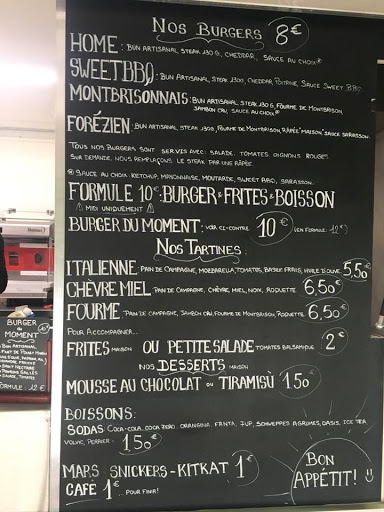 Nos Burgers 8€
HOME: BUN ARTISANAL, STEAK 130G, CHEDDAR, SAUCE AU CHOIX
SWEET BBQ: BUN ARTISANAL, STEAK 130G, CHEDDAR, POITRINE, SAUCE SWEET BBQ
MONTBRISONNAIS: BUN ARTISANAL, STEAK 130G, FOURME DE MONTBRISON,
JAMBON CRU, SAUCE AU CHOIX
FORÉZIEN: BUN ARTISANAL, STEAK 130G, FOURME DE MONTBRISON, RÂPÉE "MAISON", SAUCE SARASSON.
TOUS NOS BURGERS SONT SERVIS AVEC: SALADE, TOMATES OIGNONS ROUGES.
SUR DEMANDE, NOUS REMPLAÇONS LE STEAK PAR UNE RÂPÉE.
SAUCE AU CHOIX: KETCHUP, MAYONNAISE, MOUTARDE, SWEET BBQ, SARASSON.
FORMULE 10€: BURGER + FRITES + BOISSON
⚠ MIDI UNIQUEMENT ⚠
BURGER DU MOMENT: VOIR CI-CONTRE 10€ (EN FORMULE: 12€)
Nos Tartines:
ITALIENNE: PAIN DE CAMPAGNE, MOZZARELLA, TOMATES, BASILIC FRAIS, HUILE D'OLIVE 5,50€
CHÈVRE MIEL: PAIN DE CAMPAGNE, CHÈVRE, MIEL, NOIX, ROQUETTE 6,50€
FOURME: PAIN DE CAMPAGNE, JAMBON CRU, FOURME DE MONTBRISON, ROQUETTE. 6,50€
POUR ACCOMPAGNER...
FRITES MAISON OU PETITE SALADE TOMATES BALSAMIQUE 2€
NOS DESSERTS MAISON
MOUSSE AU CHOCOLAT OU TIRAMISÙ 1,50€
BOISSONS:
SODAS COCA-COLA, COCA ZERO, ORANGINA, FANTA, 7UP, SCHWEPPES AGRUMES, OASIS, ICE TEA
VOLVIC, PERRIER. 1,50€
MARS SNICKERS - KITKAT 1€
CAFÉ 1€ ... POUR FINIR!
BON
APPÉTIT!
BURGER
DU
MOMENT
- BUN ARTISANAL
FORMULE: 12€